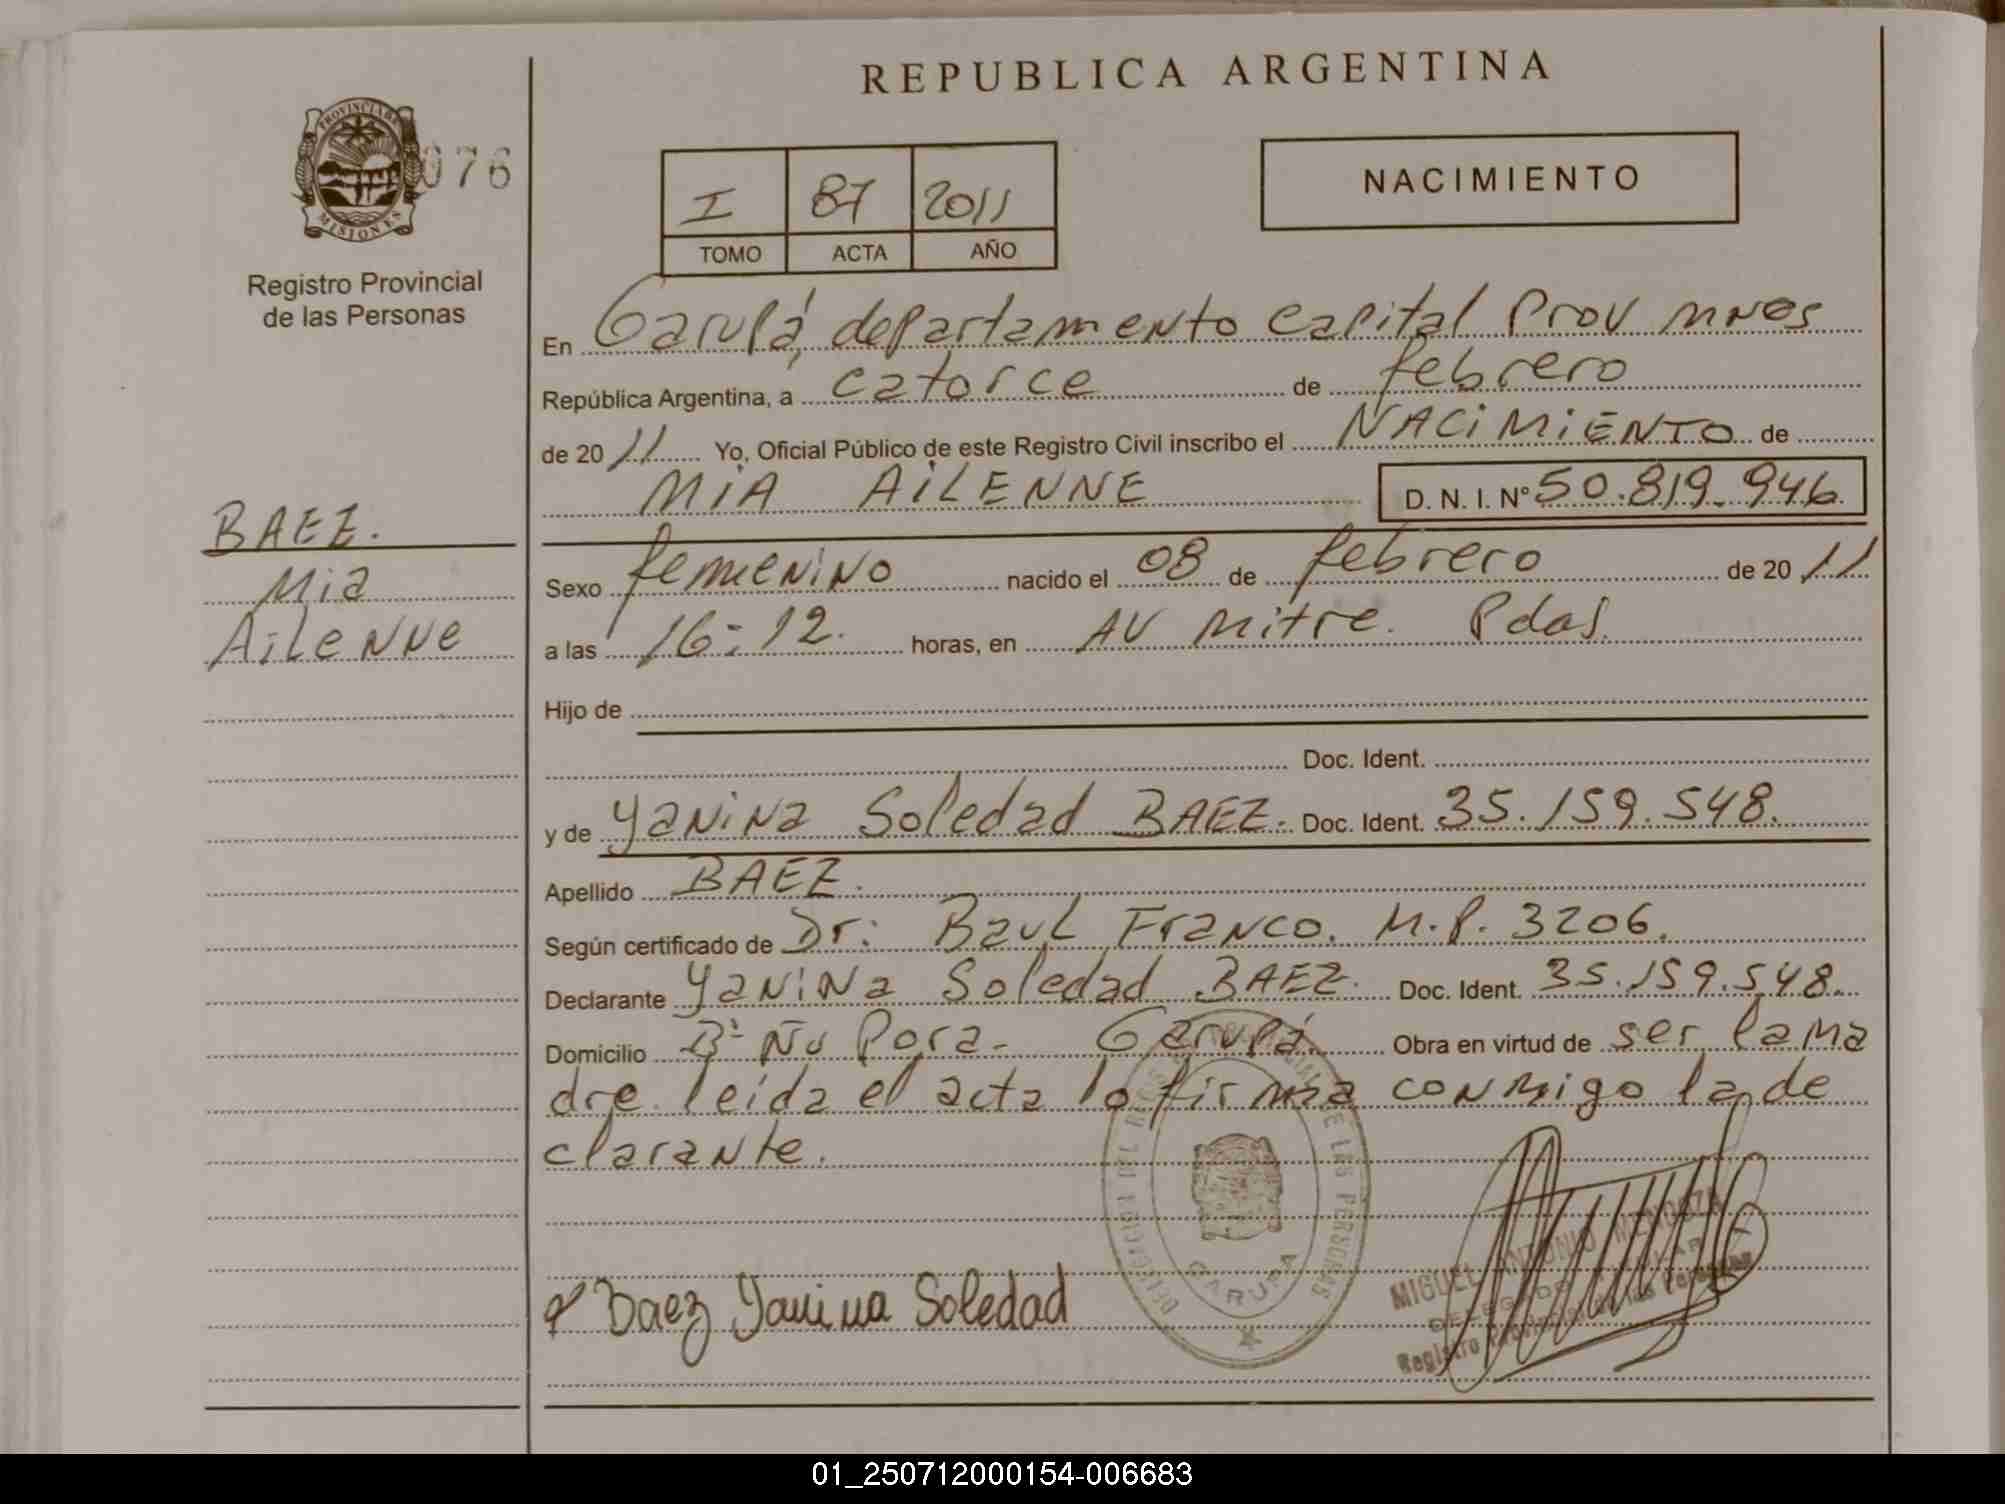 REPUBLICA ARGENTINA
PROVINCIA DE
MISIONES
076
Registro Provincial
de las Personas
I 87 2011
TOMO ACTA AÑO
NACIMIENTO
En Garupá, departamento Capital Prov Mnes
República Argentina, a catorce de febrero
de 2011 Yo, Oficial Público de este Registro Civil inscribo el NACIMIENTO de
MIA AILENNE D. N. I. N° 50.819.946
BAEZ.
Mia
Ailenne
Sexo femenino nacido el 08 de febrero de 2011
a las 16:12. horas, en AV Mitre. Pdas.
Hijo de
Doc. Ident.
y de Yanina Soledad BAEZ. Doc. Ident. 35.159.548.
Apellido BAEZ.
Según certificado de Dr: Baul Franco. M.P. 3206.
Declarante Yanina Soledad BAEZ. Doc. Ident. 35.159.548.
Domicilio B° Ñu Pora - Garupá. Obra en virtud de ser la ma
dre. leida el acta la firma conmigo la de
clarante.
DE LAS PERSONAS
GARUPA
Baez Yanina Soledad
MIGUEL ANTONIO MENDOZA
DELEGADO TITULAR
Registro Provincial de las Personas
01_250712000154-006683